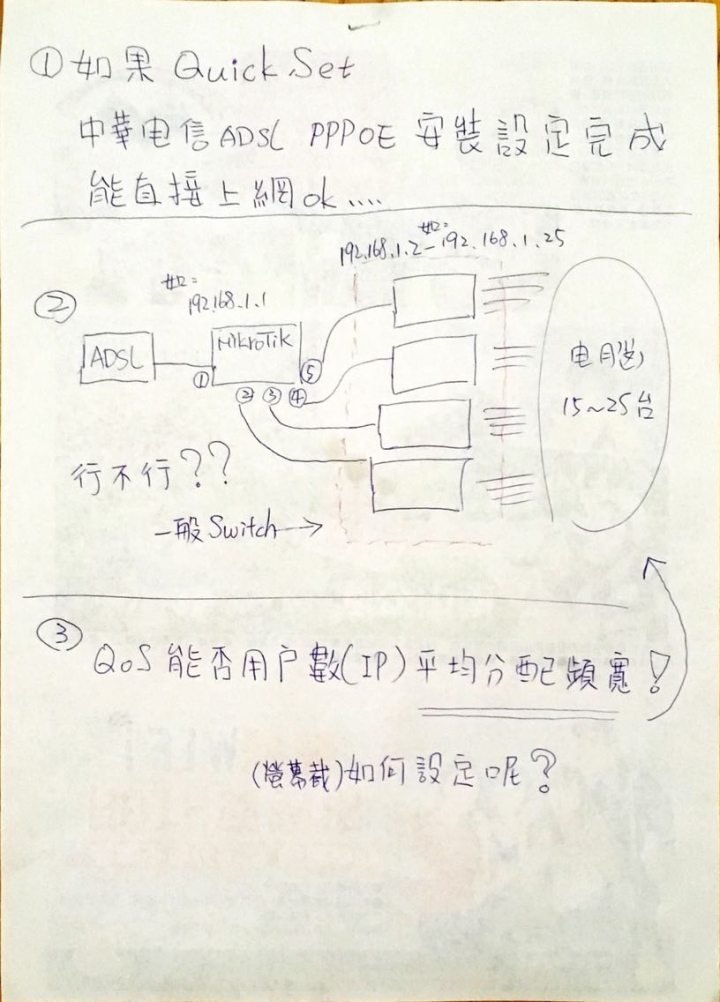 ① 如果 Quick Set
中華电信 ADSL PPPOE 安裝設定完成
能直接上網 ok....
②
如:
192.168.1.1
如:
192.168.1.2-192.168.1.25
ADSL
MikroTik
①
②
③
④
⑤
电腦
15~25台
行不行??
一般 Switch→
③
QoS 能否用户數(IP)平均分配頻寬!
(螢幕截)如何設定呢?